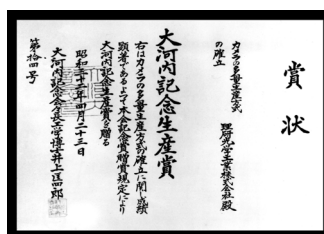 賞状
カメラの多量生産方式
の確立
理研光学工業株式会社殿
大河内記念生産賞
右はカメラの多量生産方式の確立に関し成績
顕著であるよつて本会記念賞贈賞規定により
大河内記念生産賞を贈る
昭和三十年四月二十三日
大河内記念会会長工学博士井上匡四郎
第拾四号